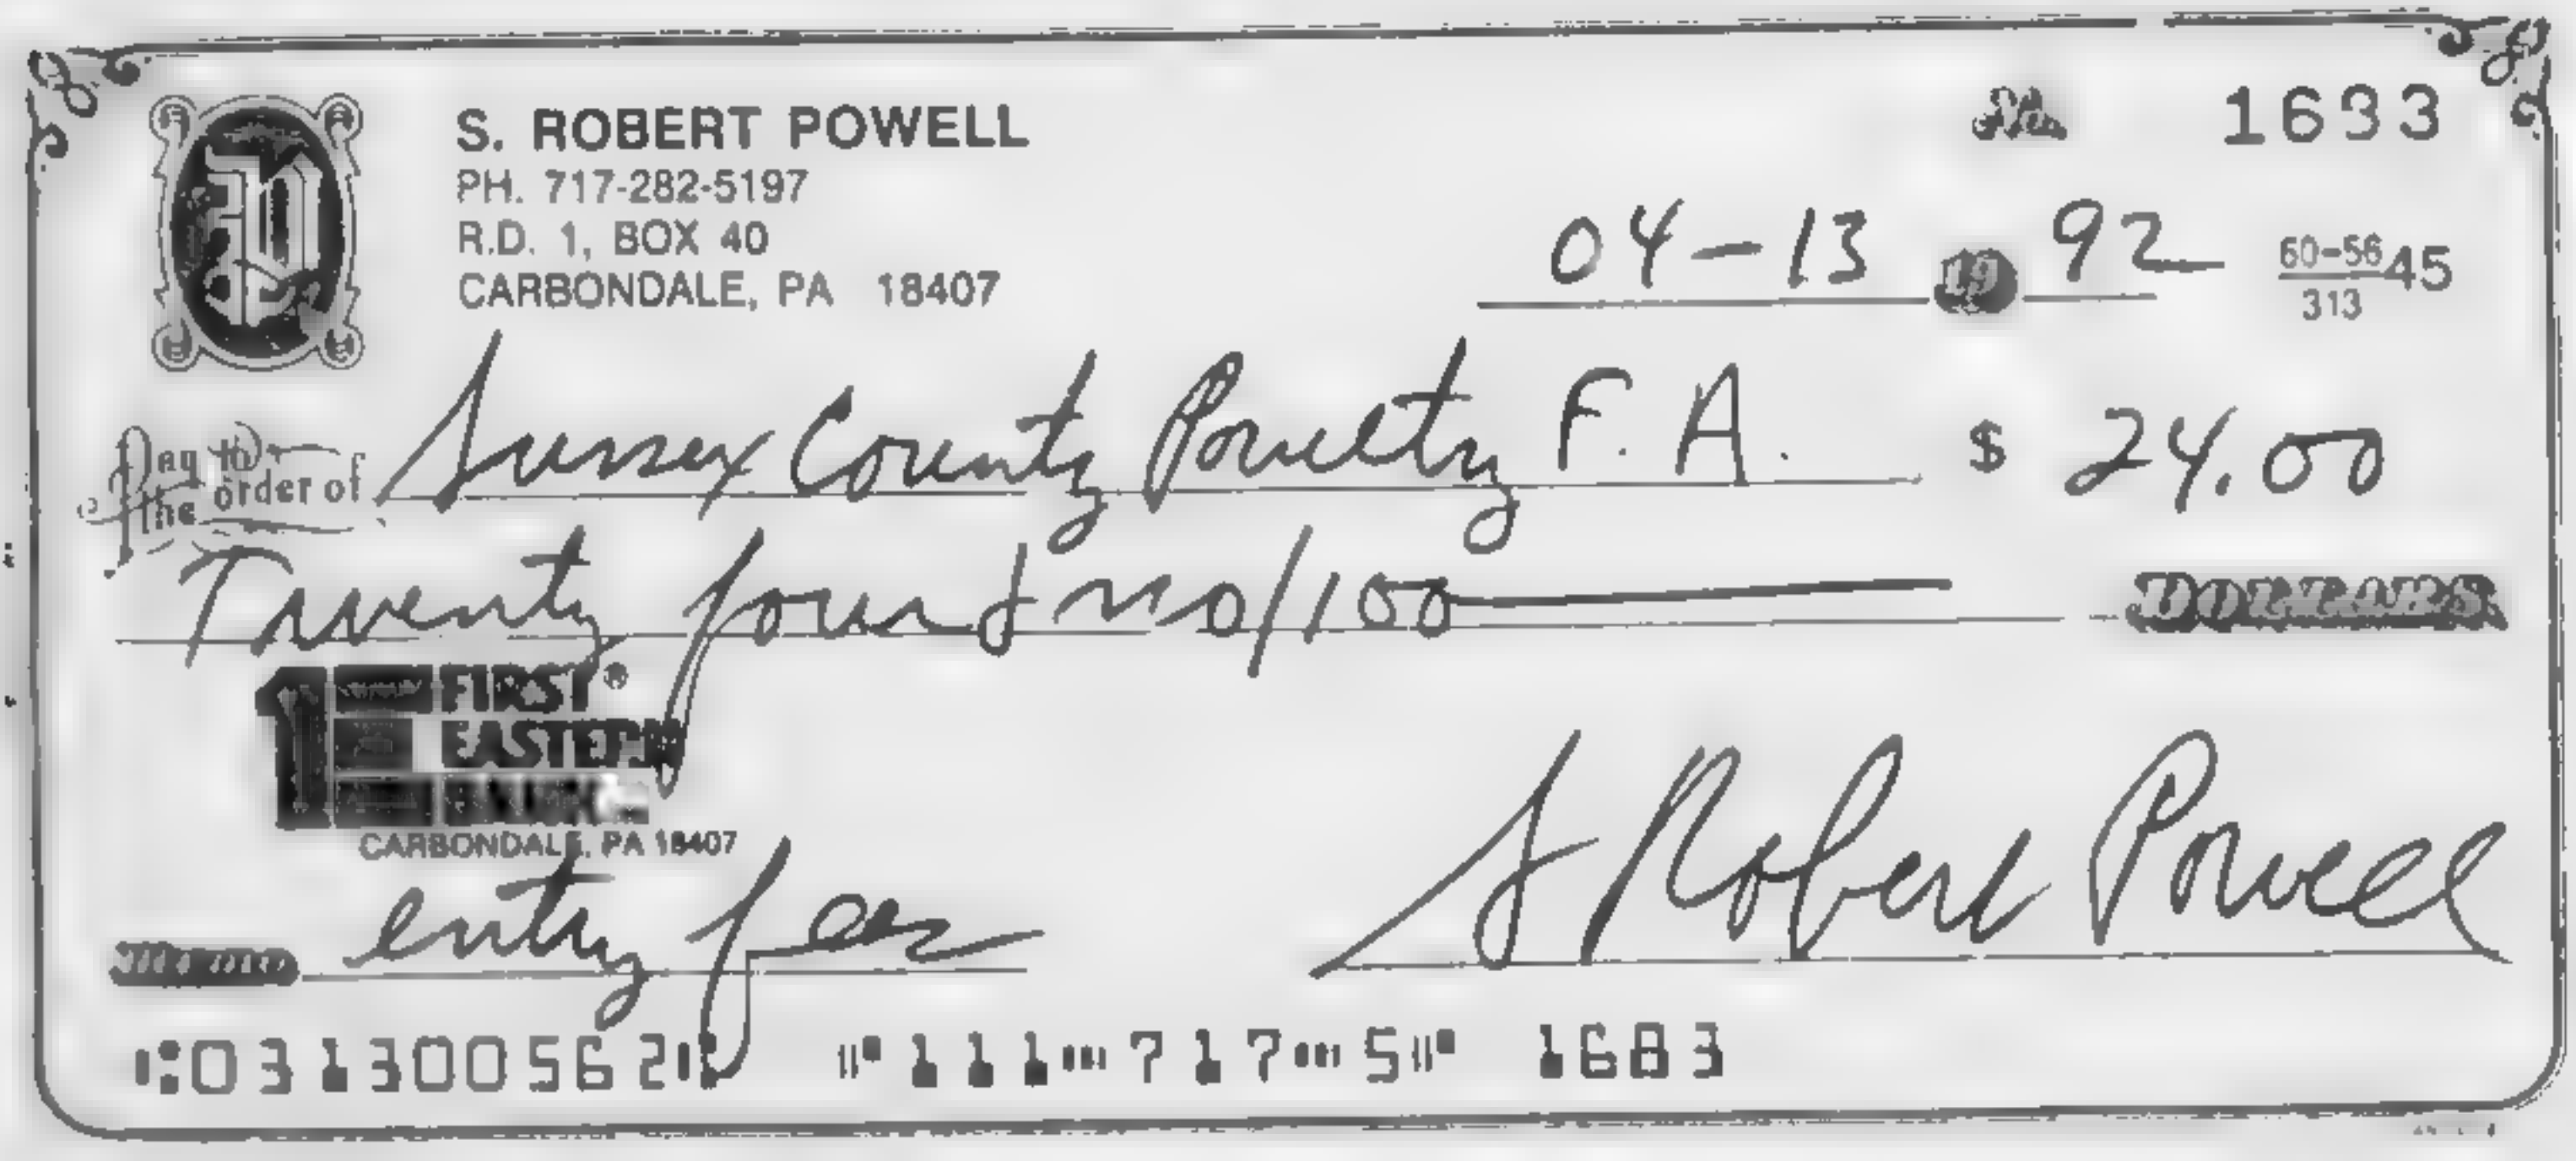 S. ROBERT POWELL
PH. 717-282-5197
R.D. 1, BOX 40
CARBONDALE, PA 18407
No. 1683
04-13 19 92
60-56 45
313
Pay to the order of Sussex County Poultry F. A. $ 24.00
Twenty four & no/100 DOLLARS
1 FIRST®
EASTERN
BANK
CARBONDALE, PA 18407
Memo entry fees
S Robert Powell
⑆031300562⑆ ⑈111⑉717⑉5⑈ 1683